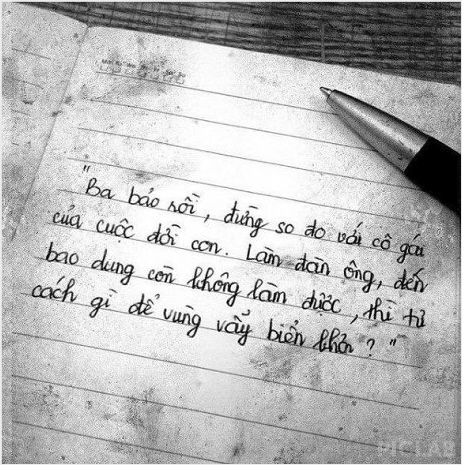 "Ba bảo rồi, đừng so đo với cô gái
của cuộc đời con. Làm đàn ông, đến
bao dung còn không làm được, thì tư
cách gì để vùng vẫy biển khơi?"
PICLAB